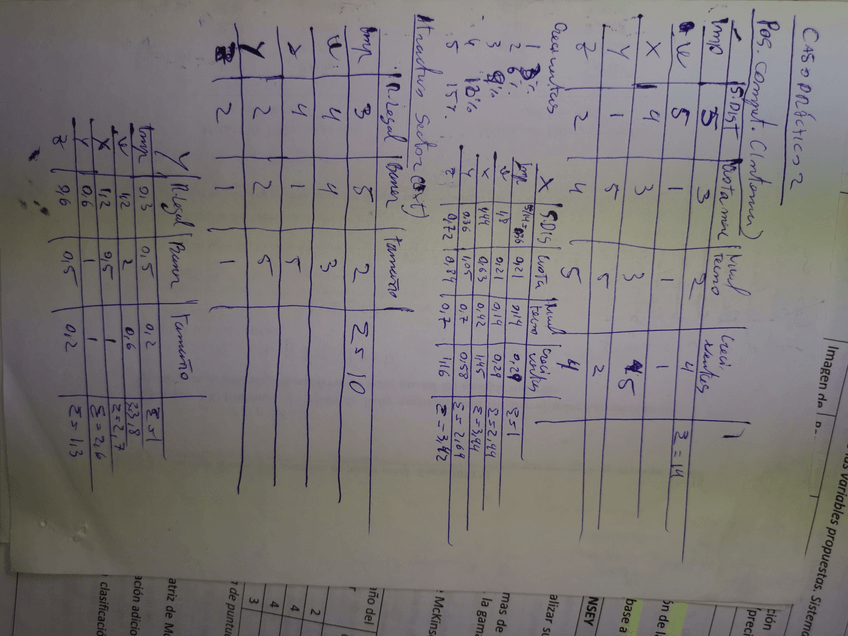 CASO PRÁCTICO 2
Pos. Compet. (Interna)
S.Dist Cuota mer Nivel tecno Creci. ventas
Imp 5 3 2 4 Σ=14
W 5 1 1 1
X 4 3 3 5
Y 1 5 5 2
Z 2 4 5 4
1 3%
2 6%
3 9%
4 12%
5 15%
X S.Dis Cuota Nivel tecno Creci ventas
Imp. 5/14=0,36 0,21 0,14 0,29 Σ=1
W 1,8 0,21 0,14 0,29 Σ=2,44
X 1,44 0,63 0,42 1,45 Σ=3,94
Y 0,36 1,05 0,7 0,58 Σ=2,69
Z 0,72 0,84 0,7 1,16 Σ=3,42
Atractivo Sector (Ext)
R.legal Bener Tamaño
Imp 3 5 2 Σ=10
W 4 4 3
X 4 1 5
Y 2 2 5
Z 2 1 1
Y R.legal Bener Tamaño
Imp 0,3 0,5 0,2 Σ=1
W 1,2 2 0,6 Σ3,8
X 1,2 0,5 1 Σ=2,7
Y 0,6 1 1 Σ=2,6
Z 0,6 0,5 0,2 Σ=1,3
Imagen de
variables propuestas. Sistema
ción
ón de l
base a
NSEY
alizar s
mas de
la gam
McKins
año del
2
4
4
3
de puntu
atriz de M
ación adicio
clasificació